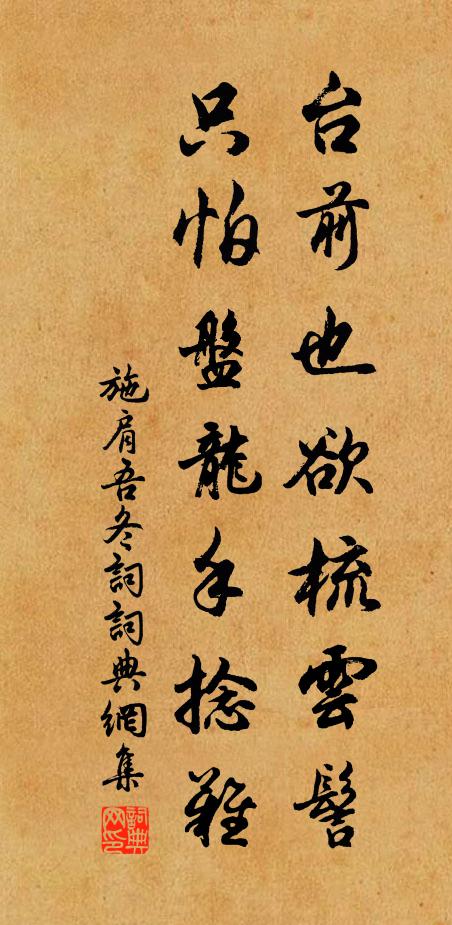 台前也欲梳雲髻
只怕盤龍手捻難
施肩吾冬詞詞典網集
詞典網印